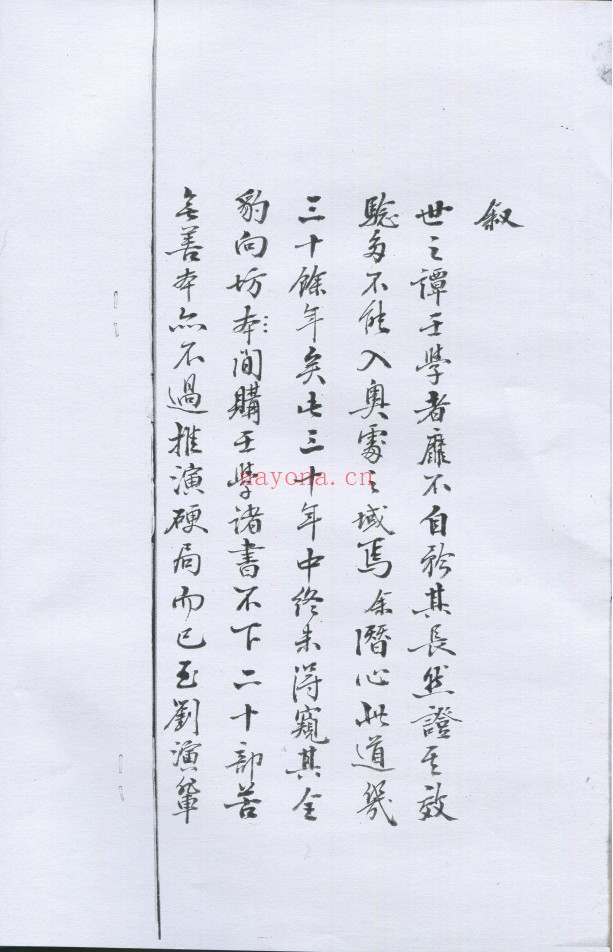 叙
世之譚壬學者靡不自矜其長然證其效
驗多不能入奥窔之域焉余潛心此道幾
三十餘年矣此三十年中終未得窺其全
豹向坊本間購壬學諸書不下二十部苦
無善本亦不過推演硬局而已至劉演輩
nayona.cn
2